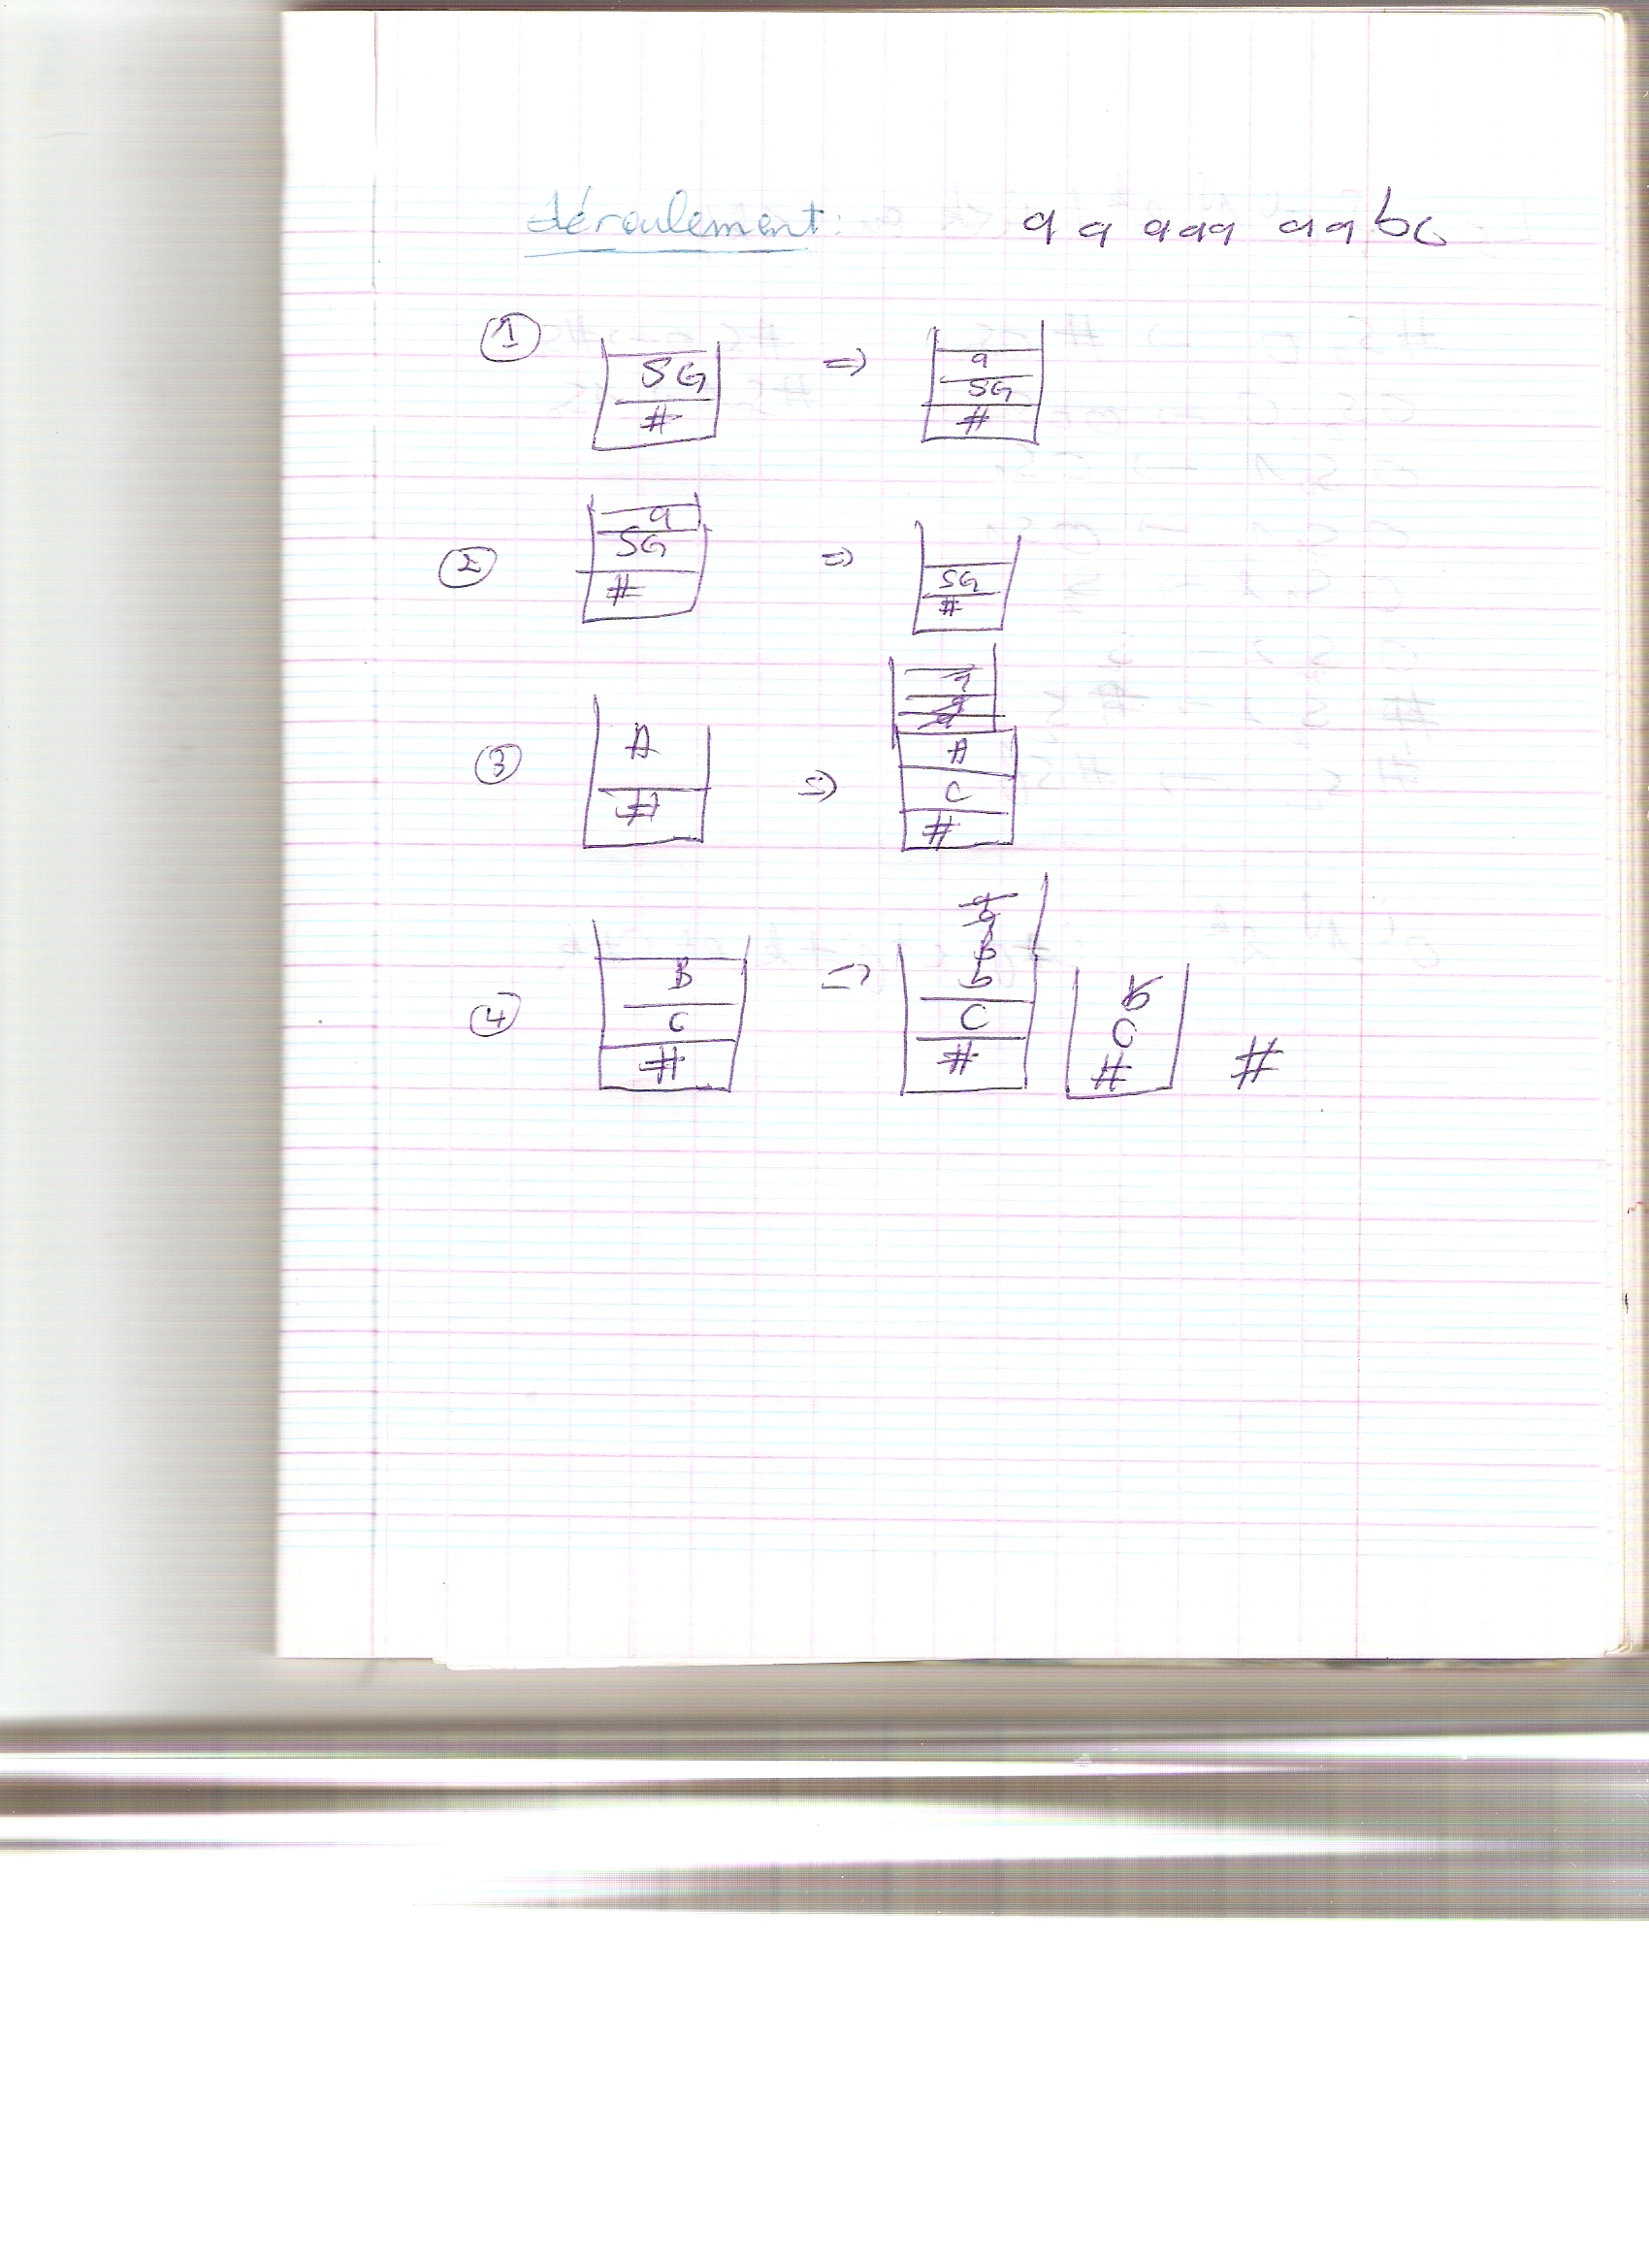 déroulement: a a aaa aabc
1
SG
#
=>
a
SG
#
2
a
SG
#
=>
SG
#
3
A
#
=>
A
C
#
4
B
C
#
=>
b
C
#
b
C
#
#